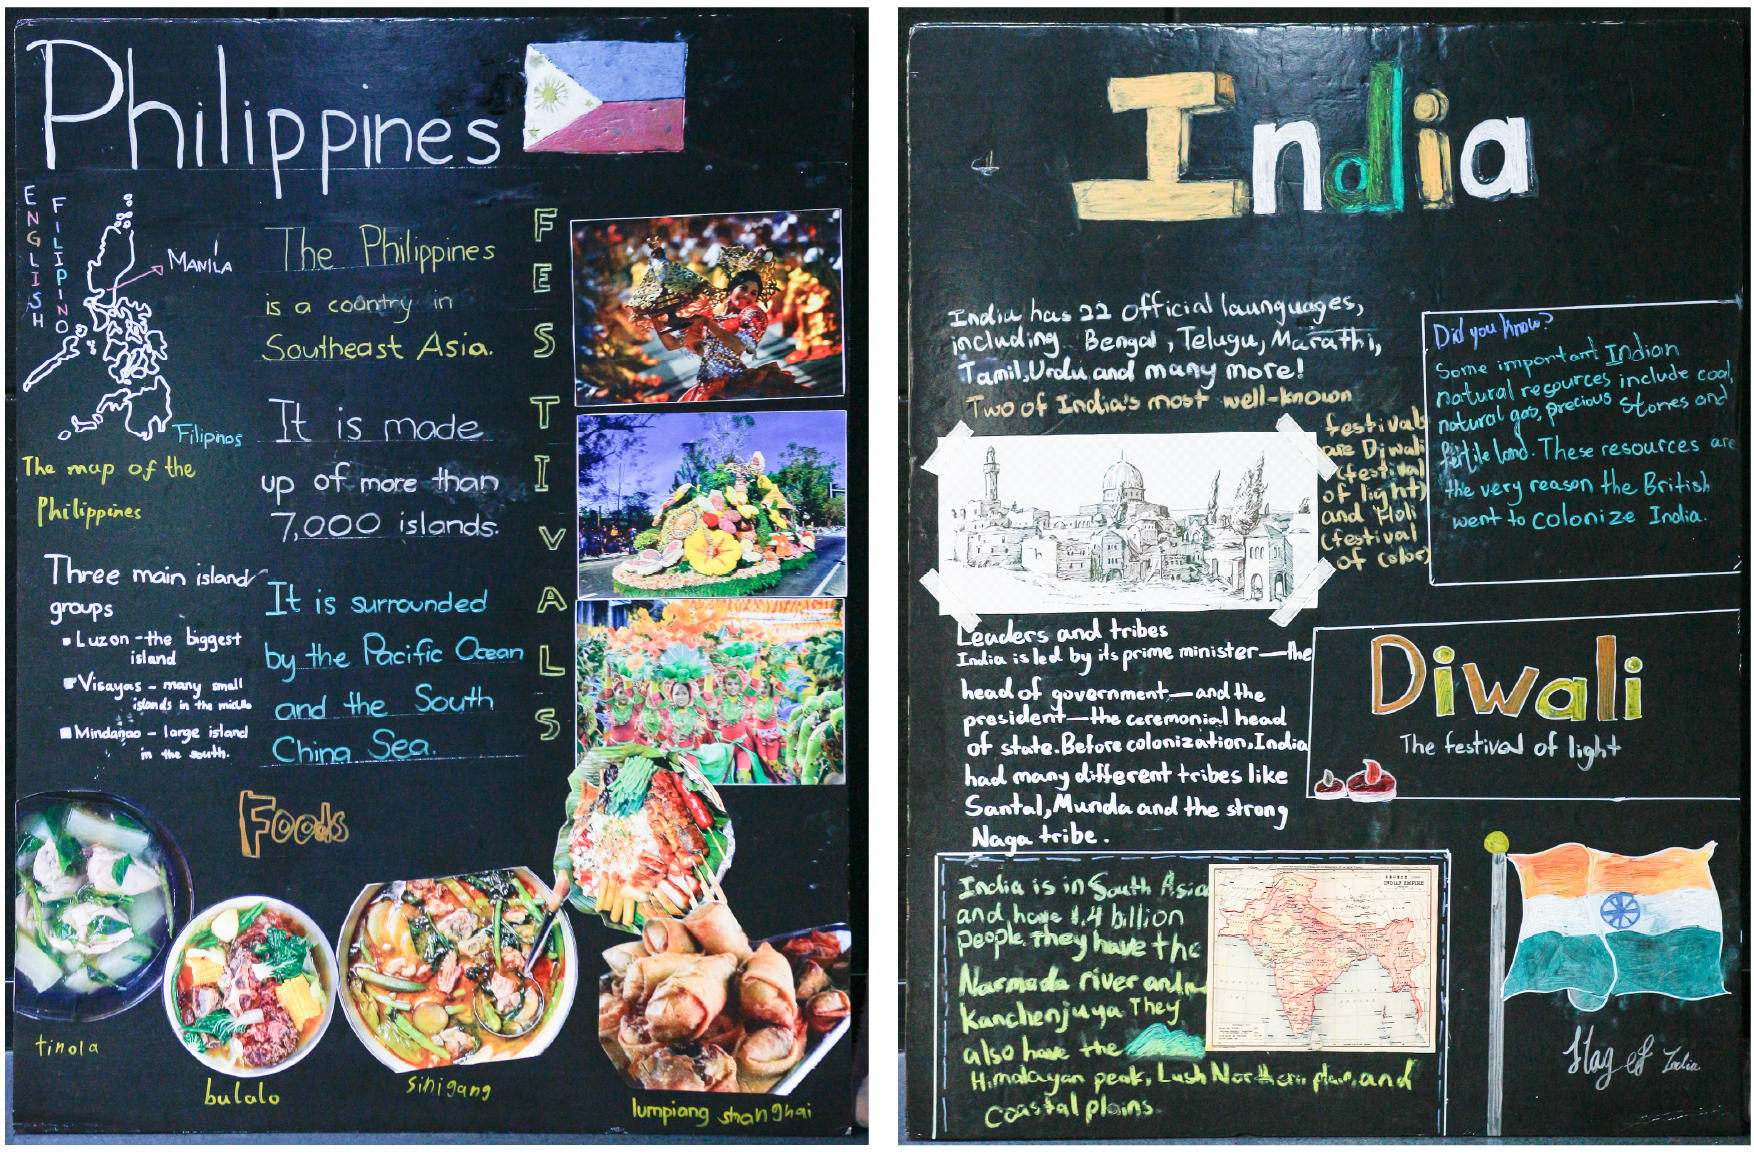 Philippines
ENGLISH
FILIPINO
MANILA
Filipnos
The map of the
Philippines
The Philippines
is a country in
Southeast Asia.
It is made
up of more than
7,000 islands.
It is surrounded
by the Pacific Ocean
and the South
China Sea.
Three main island
groups
Luzon - the biggest
island
Visayas - many small
islands in the middle
Mindanao - large island
in the south.
FESTIVALS
Foods
tinola
bulalo
sinigang
lumpiang shanghai
India
India has 22 official launguages,
including Bengal, Telugu, Marathi,
Tamil, Urdu and many more!
Two of India's most well-known
festivals
are Diwali
(festival
of light)
and Holi
(festival
of color)
Did you know?
Some important Indian
natural resources include coal,
natural gas, precious stones and
fertile land. These resources are
the very reason the British
went to colonize India.
Leaders and tribes
India is led by its prime minister—the
head of government—and the
president—the ceremonial head
of state. Before colonization, India
had many different tribes like
Santal, Munda and the strong
Naga tribe.
Diwali
The festival of light
India is in South Asia
and have 1.4 billion
people. They have the
Narmada river and
Kanchenjuga They
also have the
Himalayan peak, Lush Northern plain, and
Coastal plains.
INDIAN EMPIRE
flag of India